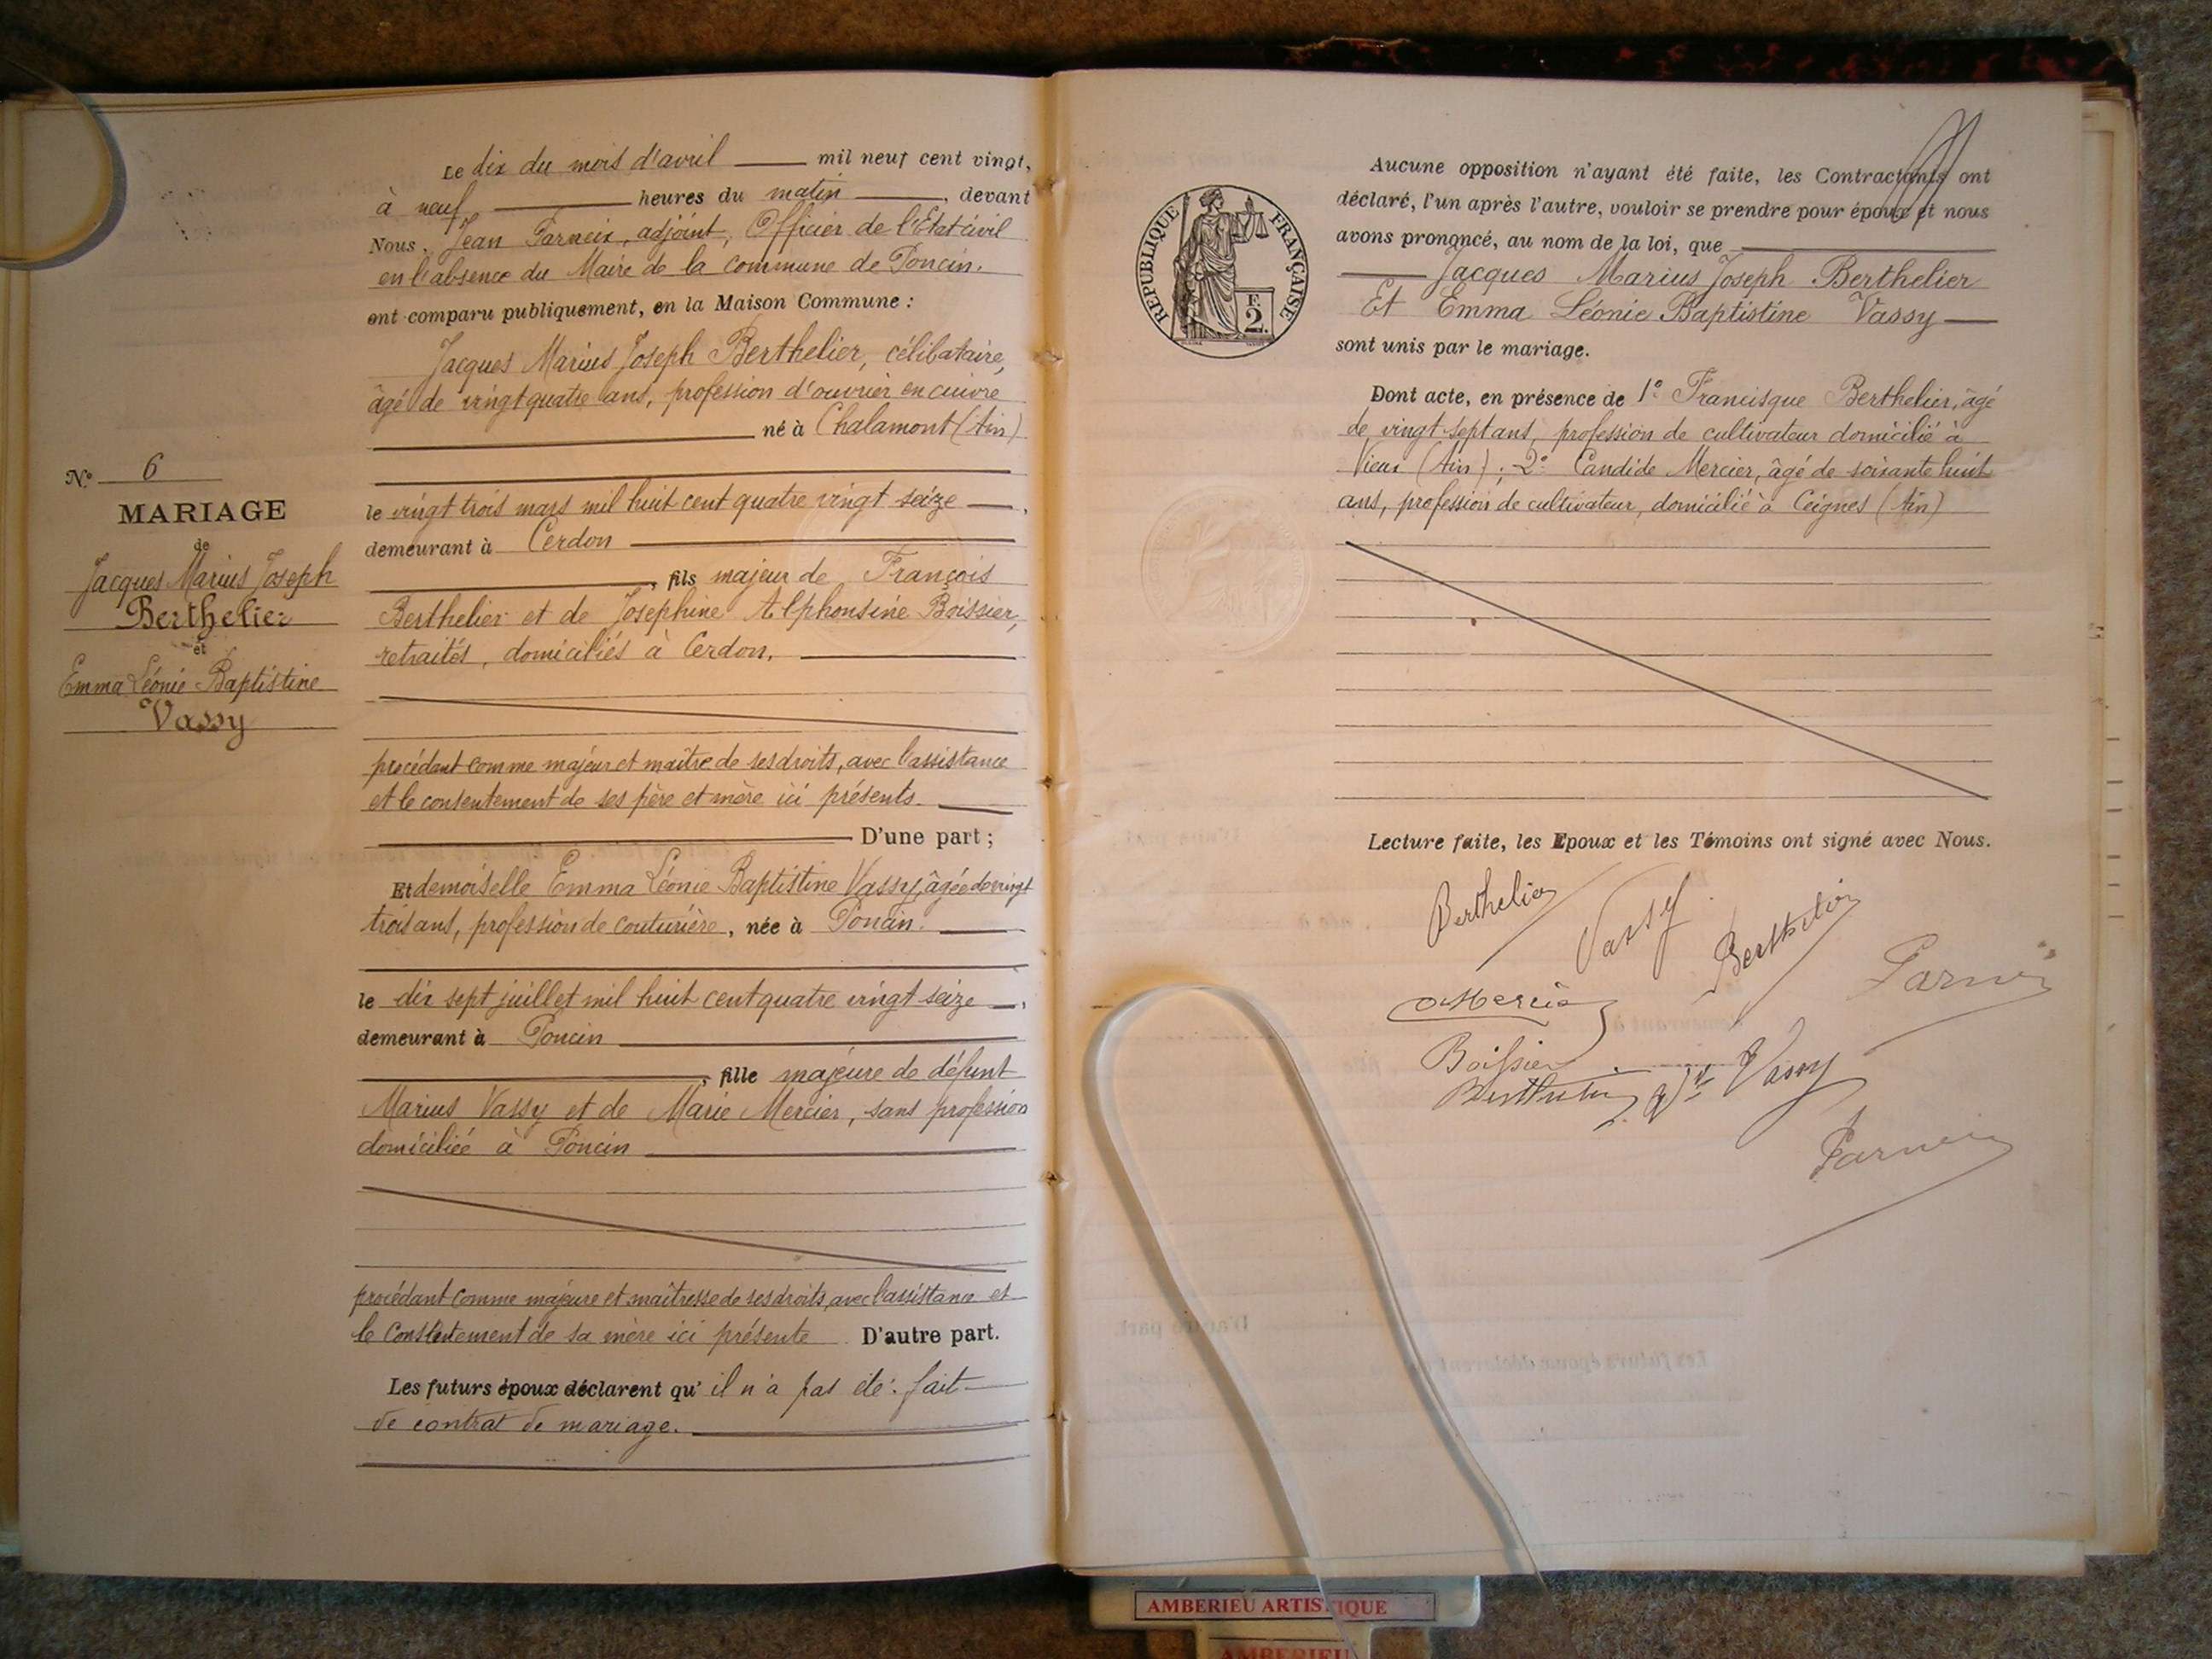 N.º 6
MARIAGE
de
Jacques Marius Joseph
Berthelier
et
Emma Léonie Baptistine
Vassy
Le dix du mois d'avril mil neuf cent vingt,
à neuf heures du matin, devant
Nous, Jean Farneix, adjoint, Officier de l'Etat civil
en l'absence du Maire de la commune de Poncin.
ont comparu publiquement, en la Maison Commune :
Jacques Marius Joseph Berthelier, célibataire,
âgé de vingt quatre ans, profession d'ouvrier en cuivre
né à Chalamont (Ain)
le vingt trois mars mil huit cent quatre vingt seize,
demeurant à Cerdon
, fils majeur de François
Berthelier et de Josephine Alphonsine Boissier,
retraités, domiciliés à Cerdon.
procédant comme majeur et maître de ses droits, avec l'assistance
et le consentement de ses père et mère ici présents.
D'une part ;
Et demoiselle Emma Léonie Baptistine Vassy, âgée de vingt
trois ans, profession de couturière, née à Poncin.
le dix sept juillet mil huit cent quatre vingt seize,
demeurant à Poncin
, fille majeure de défunt
Marius Vassy et de Marie Mercier, sans profession
domiciliée à Poncin
procédant comme majeure et maîtresse de ses droits, avec l'assistance et
le consentement de sa mère ici présente D'autre part.
Les futurs époux déclarent qu'il n'a pas été fait
de contrat de mariage.
RÉPUBLIQUE FRANÇAISE
F.
2.
Aucune opposition n'ayant été faite, les Contractants ont
déclaré, l'un après l'autre, vouloir se prendre pour époux et nous
avons prononcé, au nom de la loi, que
Jacques Marius Joseph Berthelier
Et Emma Léonie Baptistine Vassy
sont unis par le mariage.
Dont acte, en présence de 1º Francisque Berthelier, âgé
de vingt-sept ans, profession de cultivateur domicilié à
Vieu (Ain) ; 2º Candide Mercier, âgé de soixante huit
ans, profession de cultivateur, domicilié à Ceignes (Ain)
Lecture faite, les Epoux et les Témoins ont signé avec Nous.
Berthelier
Vassy
Berthelier
Mercier
Boissier
Berthelier
Vve Vassy
AMBERIEU ARTISTIQUE
AMBERIEU